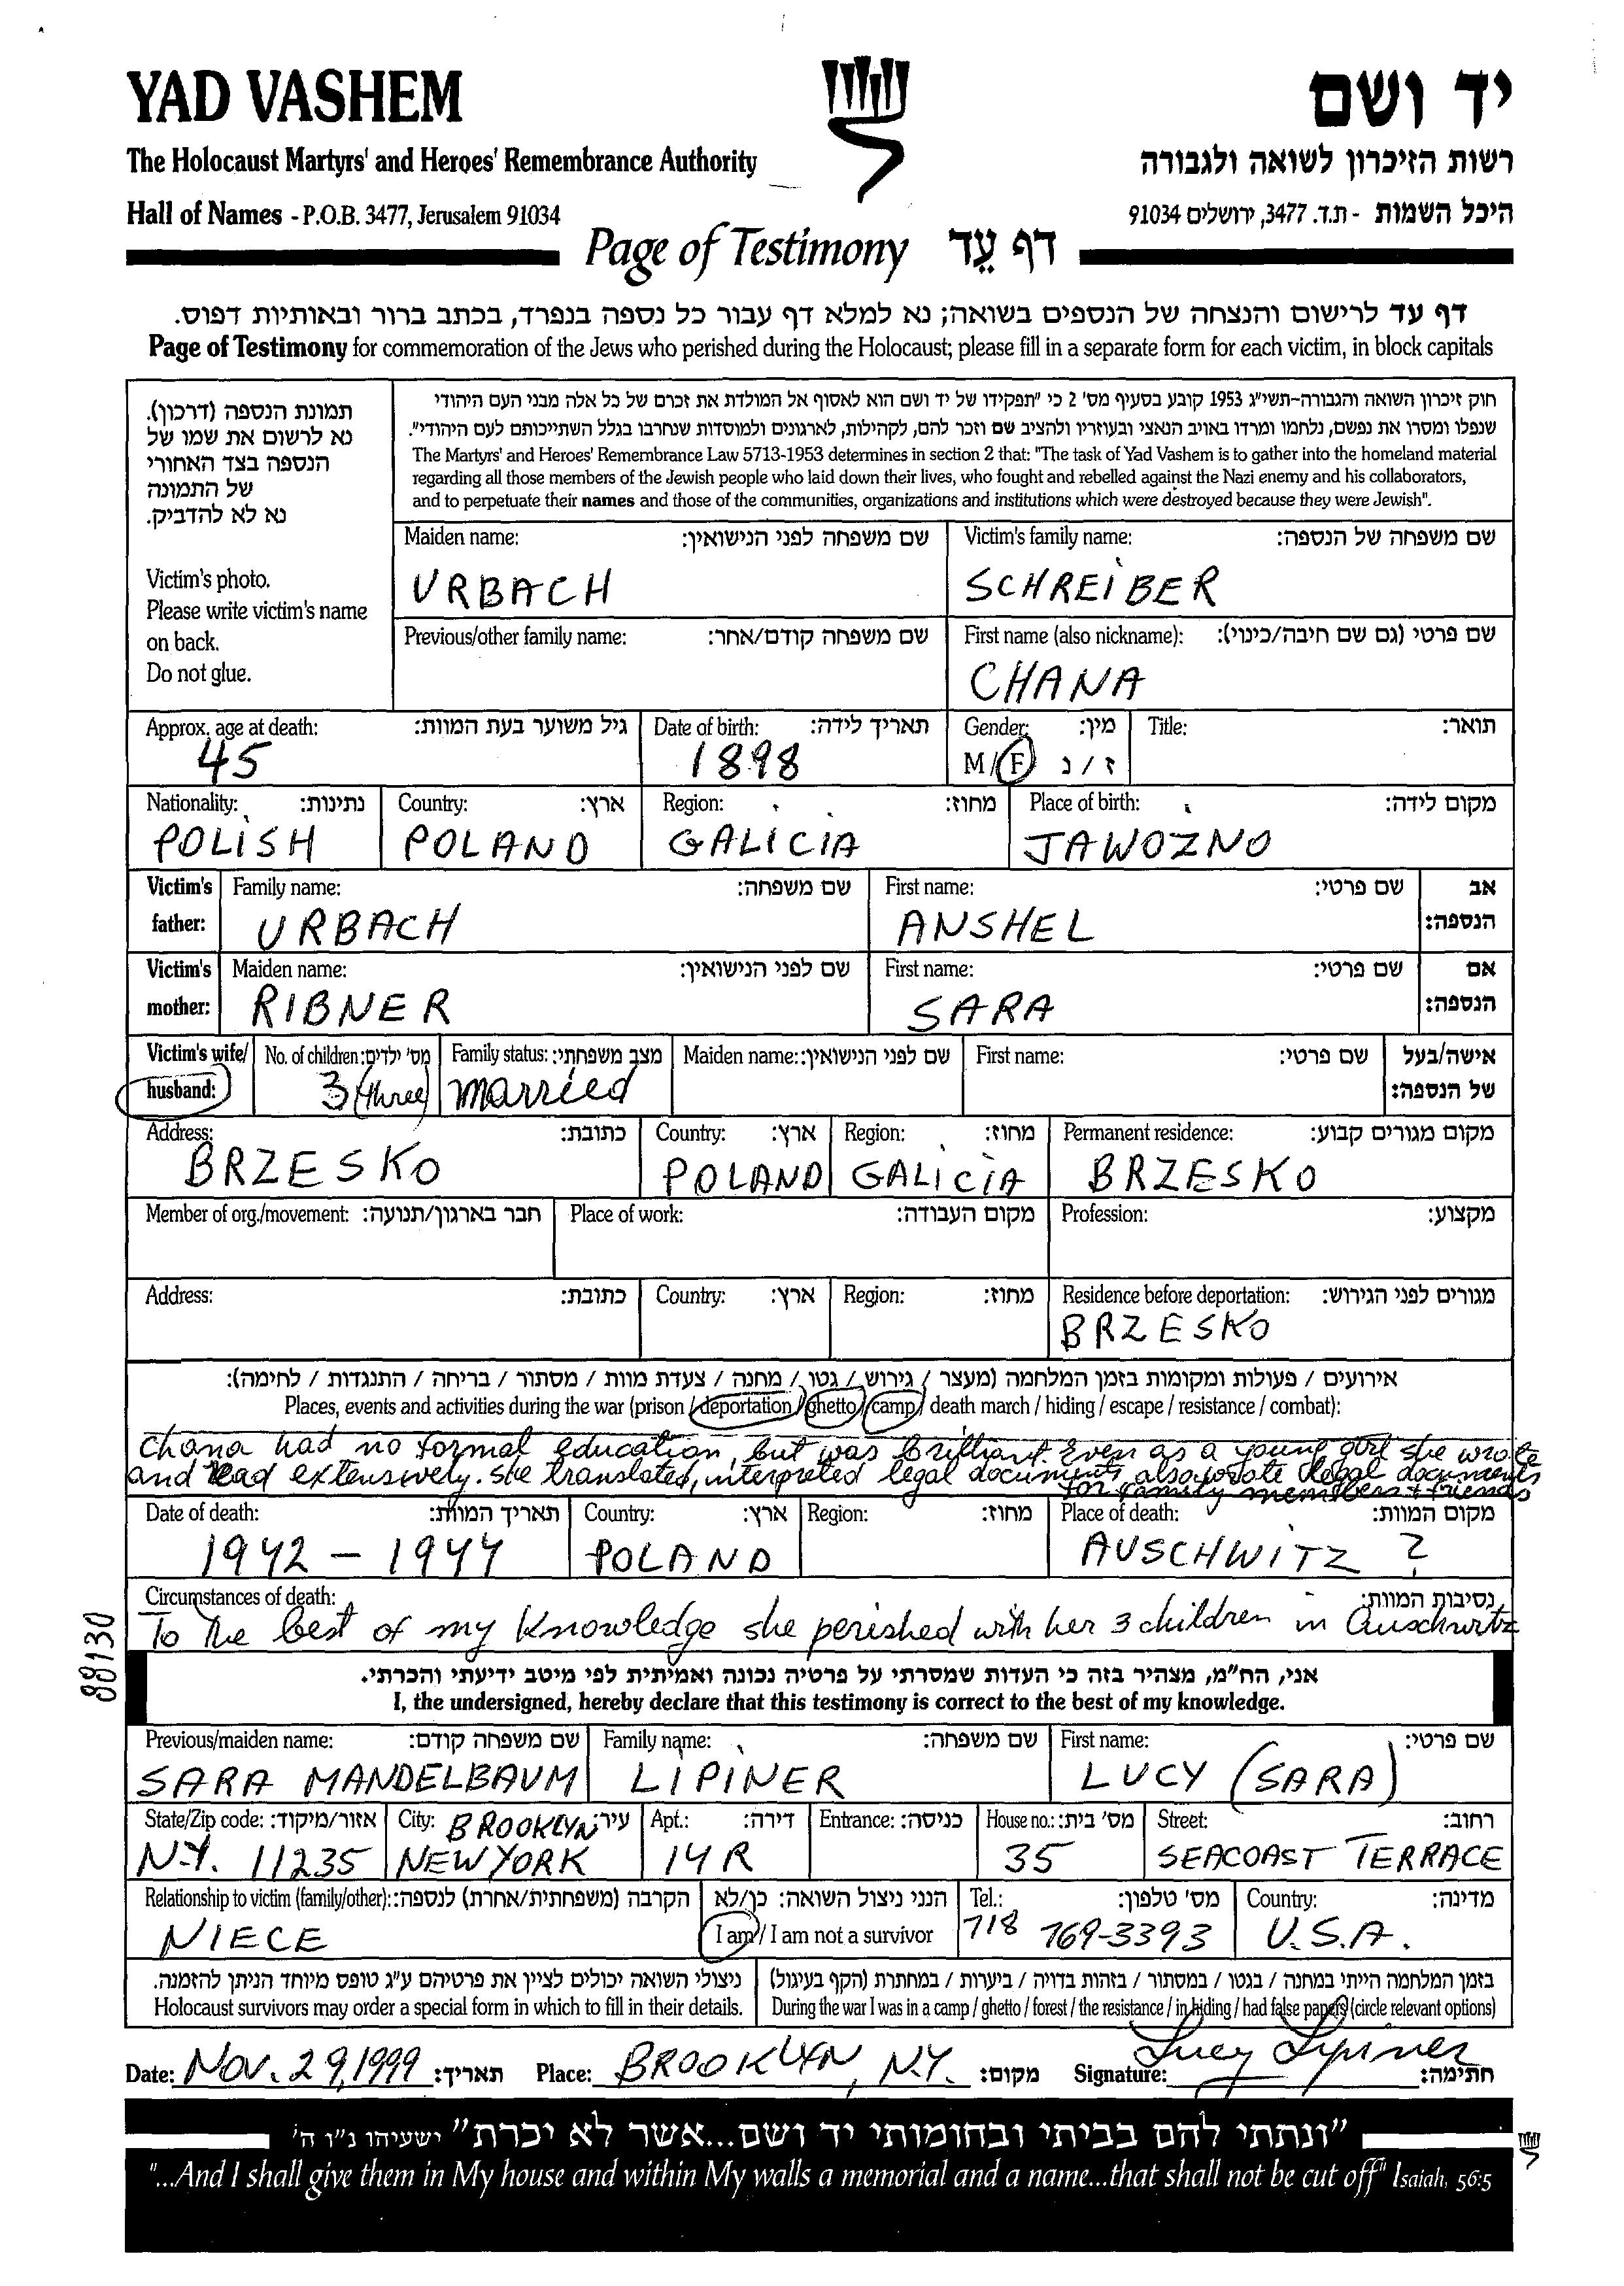 YAD VASHEM
יד ושם
The Holocaust Martyrs' and Heroes' Remembrance Authority
רשות הזיכרון לשואה ולגבורה
Hall of Names - P.O.B. 3477, Jerusalem 91034
היכל השמות - ת.ד. 3477, ירושלים 91034
Page of Testimony דף עֵד
דף עד לרישום והנצחה של הנספים בשואה; נא למלא דף עבור כל נספה בנפרד, בכתב ברור ובאותיות דפוס.
Page of Testimony for commemoration of the Jews who perished during the Holocaust; please fill in a separate form for each victim, in block capitals
תמונת הנספה (דרכון).
נא לרשום את שמו של
הנספה בצד האחורי
של התמונה
נא לא להדביק.
Victim's photo.
Please write victim's name
on back.
Do not glue.
חוק זיכרון השואה והגבורה-תשי"ג 1953 קובע בסעיף מס' 2 כי "תפקידו של יד ושם הוא לאסוף אל המולדת את זכרם של כל אלה מבני העם היהודי
שנפלו ומסרו את נפשם, נלחמו ומרדו באויב הנאצי ובעוזריו ולהציב שם וזכר להם, לקהילות, לארגונים ולמוסדות שנחרבו בגלל השתייכותם לעם היהודי".
The Martyrs' and Heroes' Remembrance Law 5713-1953 determines in section 2 that: "The task of Yad Vashem is to gather into the homeland material
regarding all those members of the Jewish people who laid down their lives, who fought and rebelled against the Nazi enemy and his collaborators,
and to perpetuate their names and those of the communities, organizations and institutions which were destroyed because they were Jewish".
Maiden name: שם משפחה לפני הנישואין: Victim's family name: שם משפחה של הנספה:
URBACH SCHREIBER
Previous/other family name: שם משפחה קודם/אחר: First name (also nickname): שם פרטי (גם שם חיבה/כינוי):
CHANA
Approx. age at death: גיל משוער בעת המוות: Date of birth: תאריך לידה: Gender: מין: Title: תואר:
45 1898 M/F ז/נ
Nationality: נתינות: Country: ארץ: Region: מחוז: Place of birth: מקום לידה:
POLISH POLAND GALICIA JAWOZNO
Victim's father: Family name: שם משפחה: First name: שם פרטי: אב הנספה:
URBACH ANSHEL
Victim's mother: Maiden name: שם לפני הנישואין: First name: שם פרטי: אם הנספה:
RIBNER SARA
Victim's wife/ husband: No. of children: מס' ילדים: Family status: מצב משפחתי: Maiden name: שם לפני הנישואין: First name: שם פרטי: אישה/בעל של הנספה:
3 (three) married
Address: כתובת: Country: ארץ: Region: מחוז: Permanent residence: מקום מגורים קבוע:
BRZESKO POLAND GALICIA BRZESKO
Member of org./movement: חבר בארגון/תנועה: Place of work: מקום העבודה: Profession: מקצוע:
Address: כתובת: Country: ארץ: Region: מחוז: Residence before deportation: מגורים לפני הגירוש:
BRZESKO
אירועים / פעולות ומקומות בזמן המלחמה (מעצר / גירוש / גטו / מחנה / צעדת מוות / מסתור / בריחה / התנגדות / לחימה):
Places, events and activities during the war (prison / deportation / ghetto / camp / death march / hiding / escape / resistance / combat):
Chana had no formal education, but was brilliant. Even as a young girl she wrote
and read extensively. She translated, interpreted legal documents, also wrote legal documents
for family members + friends
Date of death: תאריך המוות: Country: ארץ: Region: מחוז: Place of death: מקום המוות:
1942 - 1944 POLAND AUSCHWITZ ?
Circumstances of death: נסיבות המוות:
To the best of my knowledge she perished with her 3 children in Auschwitz
88130
אני, הח"מ, מצהיר בזה כי העדות שמסרתי על פרטיה נכונה ואמיתית לפי מיטב ידיעתי והכרתי.
I, the undersigned, hereby declare that this testimony is correct to the best of my knowledge.
Previous/maiden name: שם משפחה קודם: Family name: שם משפחה: First name: שם פרטי:
SARA MANDELBAUM LIPINER LUCY (SARA)
State/Zip code: אזור/מיקוד: City: עיר: Apt.: דירה: Entrance: כניסה: House no.: מס' בית: Street: רחוב:
N.Y. 11235 BROOKLYN NEW YORK 14R 35 SEACOAST TERRACE
Relationship to victim (family/other): הקרבה (משפחתית/אחרת) לנספה: הנני ניצול השואה: כן/לא Tel.: מס' טלפון: Country: מדינה:
NIECE I am / I am not a survivor 718 769-3393 U.S.A.
ניצולי השואה יכולים לציין את פרטיהם ע"ג טופס מיוחד הניתן להזמנה. בזמן המלחמה הייתי במחנה / בגטו / במסתור / בזהות בדויה / ביערות / במחתרת (הקף בעיגול)
Holocaust survivors may order a special form in which to fill in their details. During the war I was in a camp / ghetto / forest / the resistance / in hiding / had false papers (circle relevant options)
Date: Nov. 29, 1999 תאריך: Place: BROOKLYN, N.Y. מקום: Signature: Lucy Lipiner חתימה:
"ונתתי להם בביתי ובחומותי יד ושם...אשר לא יכרת" ישעיהו נ"ו ה'
"...And I shall give them in My house and within My walls a memorial and a name...that shall not be cut off" Isaiah, 56:5